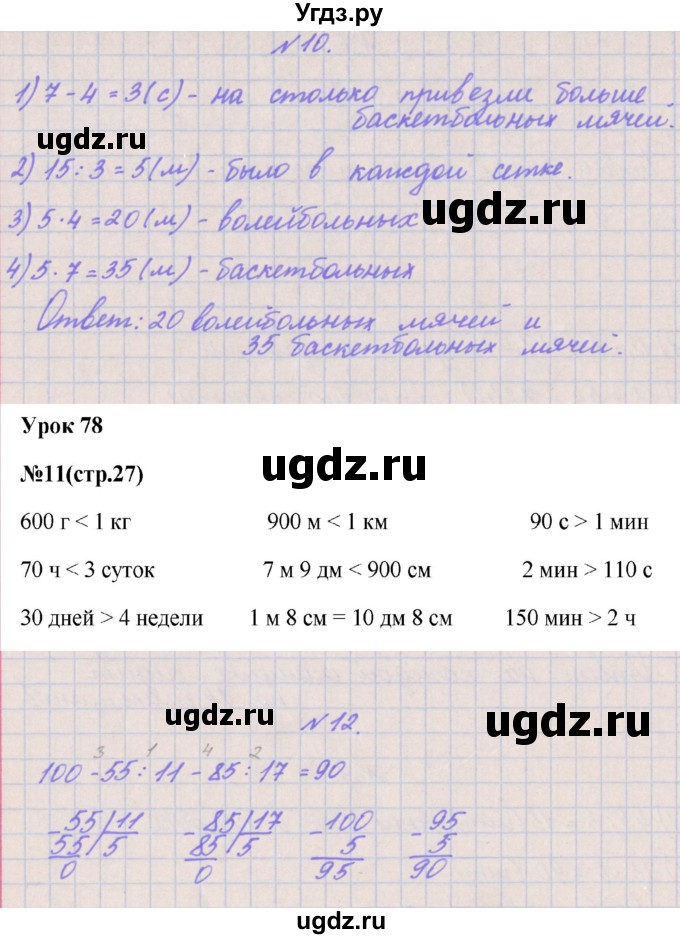 Угдз.ру
№10.
1) 7 - 4 = 3 (с) - на столько привезли больше
баскетбольных мячей.
ugdz.ru
2) 15 : 3 = 5 (м) - было в каждой сетке.
ugdz.ru
3) 5 · 4 = 20 (м) - волейбольных
4) 5 · 7 = 35 (м) - баскетбольных
Ответ: 20 волейбольных мячей и
35 баскетбольных мячей.
Урок 78
ugdz.ru
№11(стр.27)
600 г < 1 кг 900 м < 1 км 90 с > 1 мин
70 ч < 3 суток 7 м 9 дм < 900 см 2 мин > 110 с
30 дней > 4 недели 1 м 8 см = 10 дм 8 см 150 мин > 2 ч
ugdz.ru №12. ugdz.ru
3 1 4 2
100 - 55 : 11 - 85 : 17 = 90
- 55 | 11 - 85 | 17 - 100 - 95
55 | 5 85 | 5 5 5
0 0 95 90
ugdz.ru